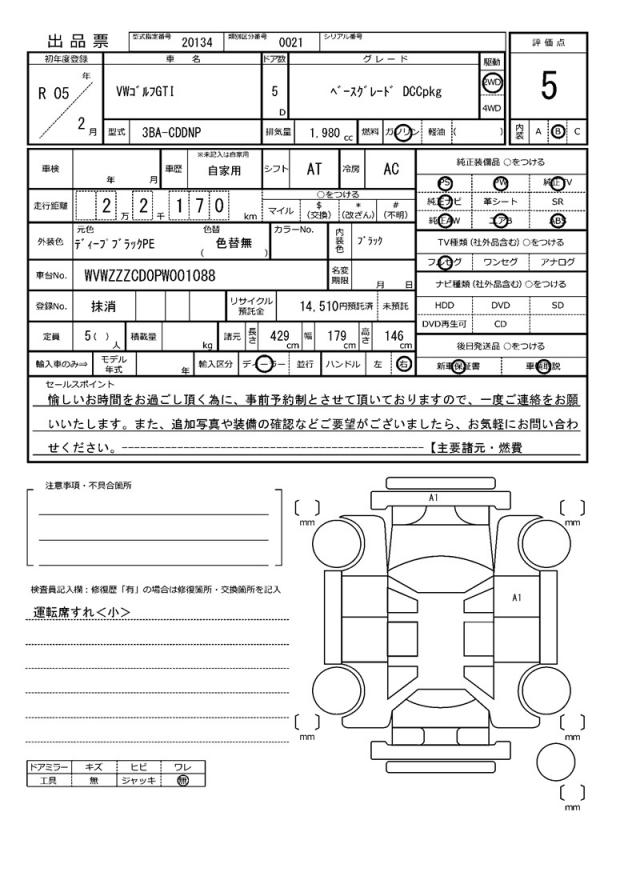 出品票 型式指定番号 20134 類別区分番号 0021 シリアル番号
評価点
5
内装 A B C
初年度登録 車名 ドア数 グレード 駆動
R 05 年 2 月
VWｺﾞﾙﾌGTI 5 D ﾍﾞｰｽｸﾞﾚｰﾄﾞ DCCpkg 2WD 4WD
型式 3BA-CDDNP 排気量 1,980 cc 燃料 ガソリン 軽油 ( )
車検 年 月 車歴 ※未記入は自家用 自家用 シフト AT 冷房 AC
走行距離 2 万 2 千 1 7 0 km
○をつける
マイル $(交換) *(改ざん) #(不明)
外装色 元色 ﾃﾞｨｰﾌﾟﾌﾞﾗｯｸPE 色替 ( 色替無 ) カラーNo. 内装色 ﾌﾞﾗｯｸ
車台No. WVWZZZCD0PW001088 名変期限 月 日
登録No. 抹消 リサイクル預託金 14,510円預託済 未預託
定員 5( ) 人 積載量 kg 諸元 長さ 429 cm 幅 179 cm 高さ 146 cm
輸入車のみ⇒ モデル年式 年 輸入区分 ディーラー 並行 ハンドル 左 右
純正装備品 ○をつける
PS PW 純正TV
純正ナビ 革シート SR
純正AW エアB ABS
TV種類(社外品含む) ○をつける
フルセグ ワンセグ アナログ
ナビ種類(社外品含む) ○をつける
HDD DVD SD
DVD再生可 CD
後日発送品 ○をつける
新車保証書 車輌取説
セールスポイント
愉しいお時間をお過ごし頂く為に、事前予約制とさせて頂いておりますので、一度ご連絡をお願
いいたします。また、追加写真や装備の確認などご要望がございましたら、お気軽にお問い合わ
せください。--------------------------------------------【主要諸元・燃費
注意事項・不具合箇所
検査員記入欄：修復歴「有」の場合は修復箇所・交換箇所を記入
運転席すれ＜小＞
ドアミラー キズ ヒビ ワレ
工具 無 ジャッキ 無
A1
A1
mm
mm
mm
mm
mm